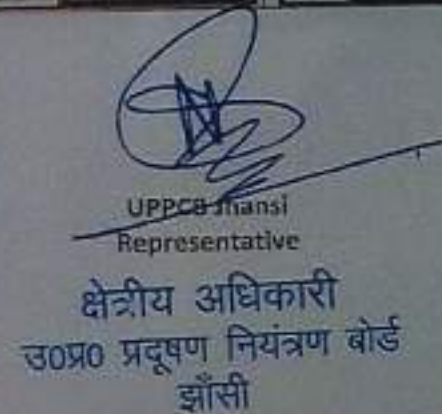 UPPCB Jhansi
Representative
क्षेत्रीय अधिकारी
उ0प्र0 प्रदूषण नियंत्रण बोर्ड
झाँसी